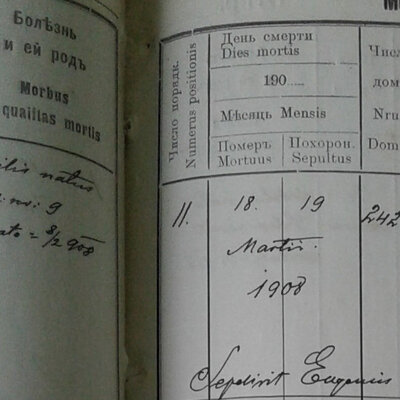 Болѣзнь
и ей родъ
Morbus
quailtas mortis
natus
9
8/2 908
Число порядк.
Numerus positionis
День смерти
Dies mortis
190
Мѣсяць Mensis
Померъ
Mortuus
Похорон.
Sepultus
Числ
дом
Nru
Dom
11. 18. 19 242
Martii.
1908
Sepelivit Eugenius